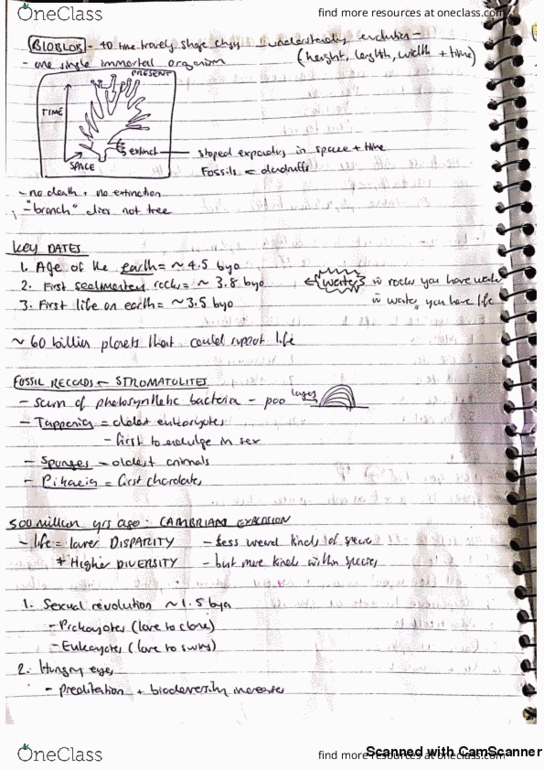 OneClass
find more resources at oneclass.com
BIOBLOB - 4D time travelly shape - understanding evolution -
- one single immortal organism (height, length, width + time)
PRESENT
TIME
SPACE
extinct - stoped expanding in space + time
Fossils = dandruff
- no death + no extinction
- "branch" dies not tree
KEY DATES
1. Age of the earth = ~ 4.5 bya
2. First sedimentary rocks = ~ 3.8 bya
water rocks you have water
3. First life on earth = ~ 3.5 bya
water you have life
~ 60 billion planets that could support life
FOSSIL RECORDS - STROMATOLITES
- scum of photosynthetic bacteria - poo layers
- Tappania = oldest eukaryotes
- first to indulge in sex
- Sponges - oldest animals
- Pikaeia = first chordates
500 million yrs ago - CAMBRIAN EXPLOSION
- life = lower DISPARITY - less weird kinds of species
+ Higher DIVERSITY - but more kinds within species
1. Sexual revolution ~ 1.5 bya
- Prokaryotes (love to clone)
- Eukaryotes (love to swing)
2. Hungry eyes
- predation + biodiversity increases
OneClass
find more resources at oneclass.com
Scanned with CamScanner